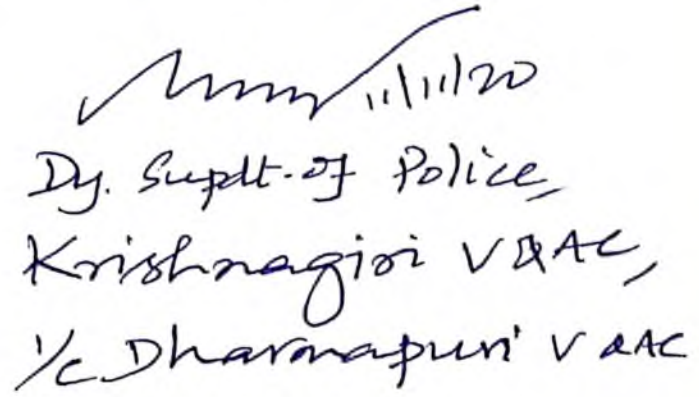 11/11/20
Dy. Supdt. of Police,
Krishnagiri V&AC,
I/c Dharmapuri V&AC